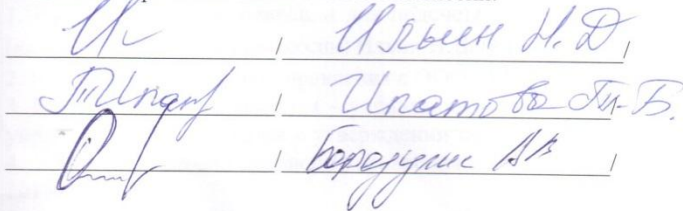 / Ильин Н.Д /
/ Ипатова Т.Б. /
/ Бородулин АВ /